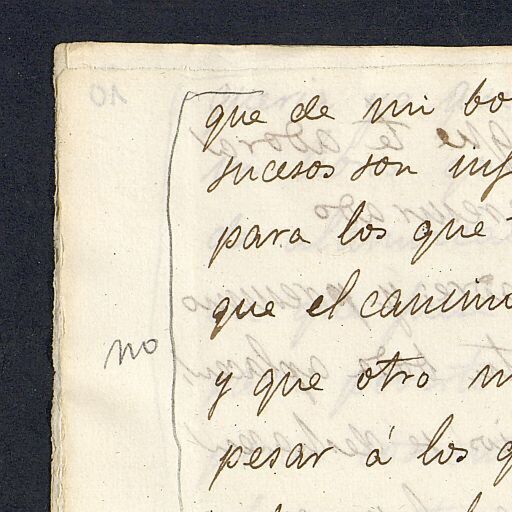 que de mi bo
sucesos son inf
para los que
que el camino
no
y que otro m
pesar á los q